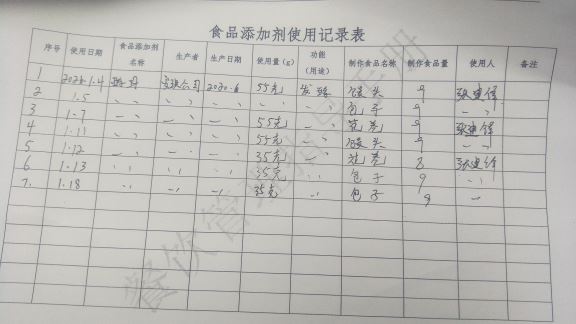 食品添加剂使用记录表
序号 使用日期 食品添加剂名称 生产者 生产日期 使用量(g) 功能(用途) 制作食品名称 制作食品量 使用人 备注
1 1.4 公司 2020.6 55克 馒头 9
2 1.5 〃 〃 〃 〃 包子 9 〃
3 1.7 〃 〃 〃 55克 〃 花卷 9
4 1.11 〃 〃 〃 55克 〃 馒头 9 〃
5 1.12 〃 〃 〃 35克 〃 花卷 8
6 1.13 〃 〃 〃 35克 〃 包子 9 〃
7. 1.18 〃 〃 〃 35克 〃 包子 9 〃
餐饮管理指导手册